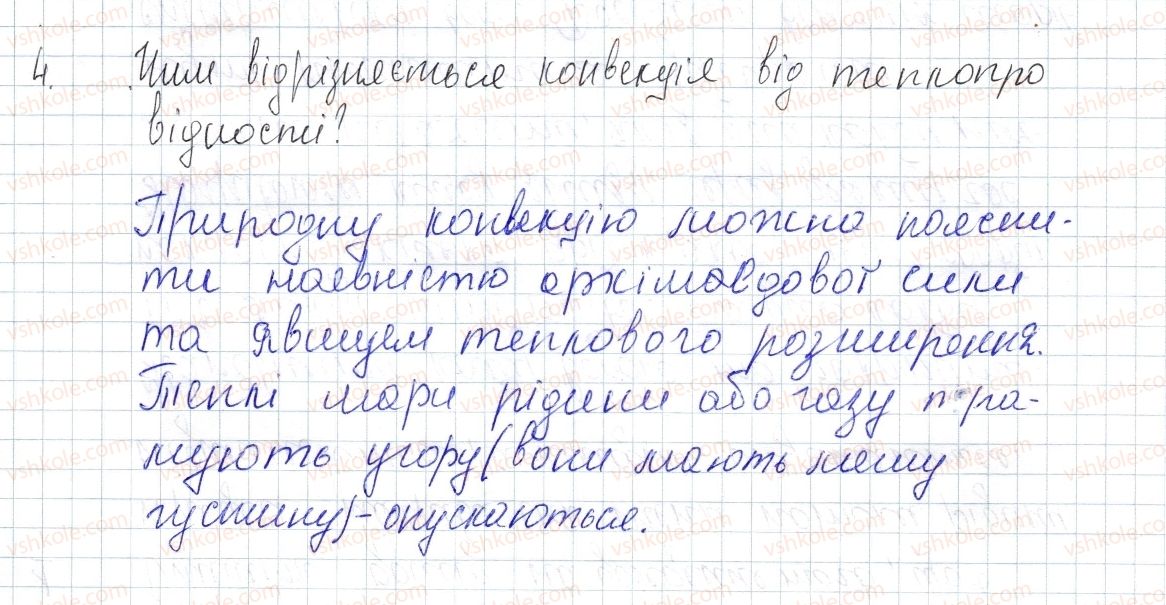 4. Чим відрізняється конвекція від теплопро
відності?
Природну конвекцію можна поясни-
ти наявністю архімедової сили
та явищем теплового розширення.
Теплі шари рідини або газу пра-
мують угору (вони мають меншу
густину) - опускаються.